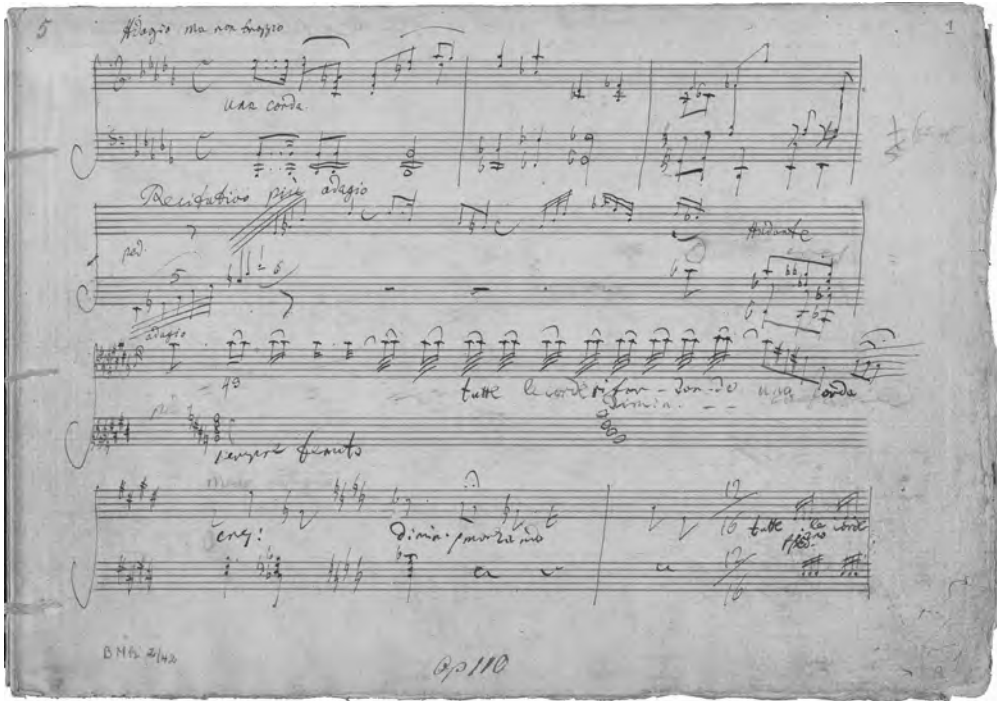 5 1
Adagio ma non troppo
una corda.
Recitativo più adagio
ped.
Andante
5
adagio
43
tutte le corde una corda
dimin. - -
sempre tenuto
12
16
cresc:
dimin. smorzando
tutte le corde
ped.
12
16
BMh 2/42
Op 110